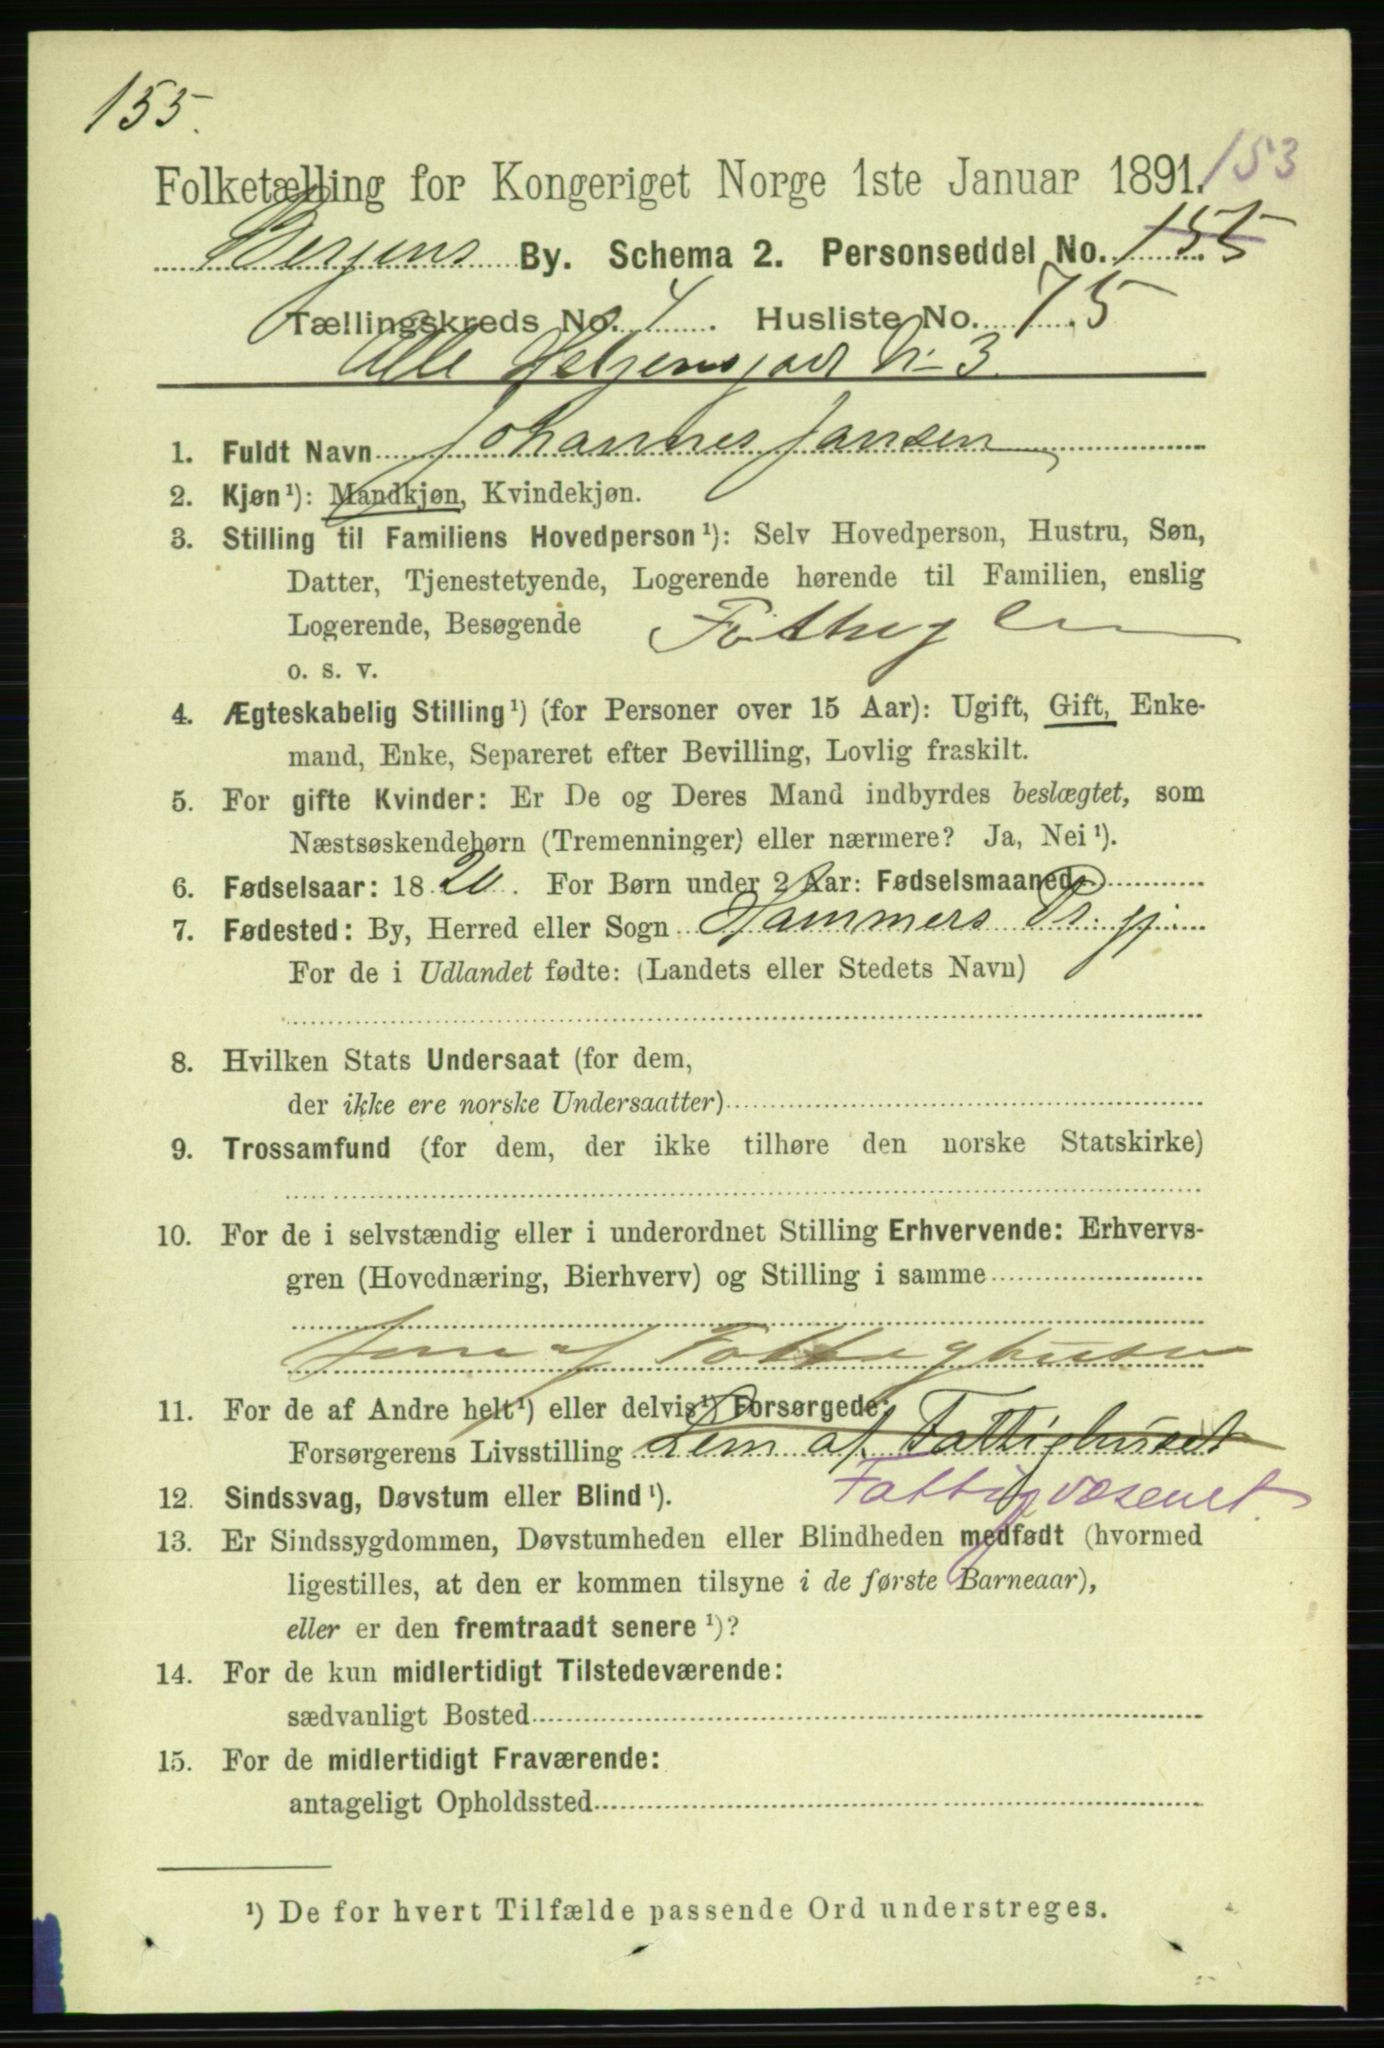 155.
Folketælling for Kongeriget Norge 1ste Januar 1891. 153
Bergens By. Schema 2. Personseddel No. 155
Tællingskreds No. 4. Husliste No. 75
Alle Helgensgad No 3.
1. Fuldt Navn Johannes Jansen
2. Kjøn¹): Mandkjøn, Kvindekjøn.
3. Stilling til Familiens Hovedperson¹): Selv Hovedperson, Hustru, Søn,
Datter, Tjenestetyende, Logerende hørende til Familien, enslig
Logerende, Besøgende Fattiglem
o. s. v.
4. Ægteskabelig Stilling¹) (for Personer over 15 Aar): Ugift, Gift, Enke-
mand, Enke, Separeret efter Bevilling, Lovlig fraskilt.
5. For gifte Kvinder: Er De og Deres Mand indbyrdes beslægtet, som
Næstsøskendebørn (Tremenninger) eller nærmere? Ja, Nei¹).
6. Fødselsaar: 1820. For Børn under 2 Aar: Fødselsmaaned
7. Fødested: By, Herred eller Sogn Hammers Pr.gj.
For de i Udlandet fødte: (Landets eller Stedets Navn)
8. Hvilken Stats Undersaat (for dem,
der ikke ere norske Undersaatter)
9. Trossamfund (for dem, der ikke tilhøre den norske Statskirke)
10. For de i selvstændig eller i underordnet Stilling Erhvervende: Erhvervs-
gren (Hovednæring, Bierhverv) og Stilling i samme
Lem af Fattighuset
11. For de af Andre helt¹) eller delvis¹) Forsørgede:
Forsørgerens Livsstilling Lem af Fattighuset
12. Sindssvag, Døvstum eller Blind¹). Fattigvæsenet.
13. Er Sindssygdommen, Døvstumheden eller Blindheden medfødt (hvormed
ligestilles, at den er kommen tilsyne i de første Barneaar),
eller er den fremtraadt senere¹)?
14. For de kun midlertidigt Tilstedeværende:
sædvanligt Bosted
15. For de midlertidigt Fraværende:
antageligt Opholdssted
¹) De for hvert Tilfælde passende Ord understreges.